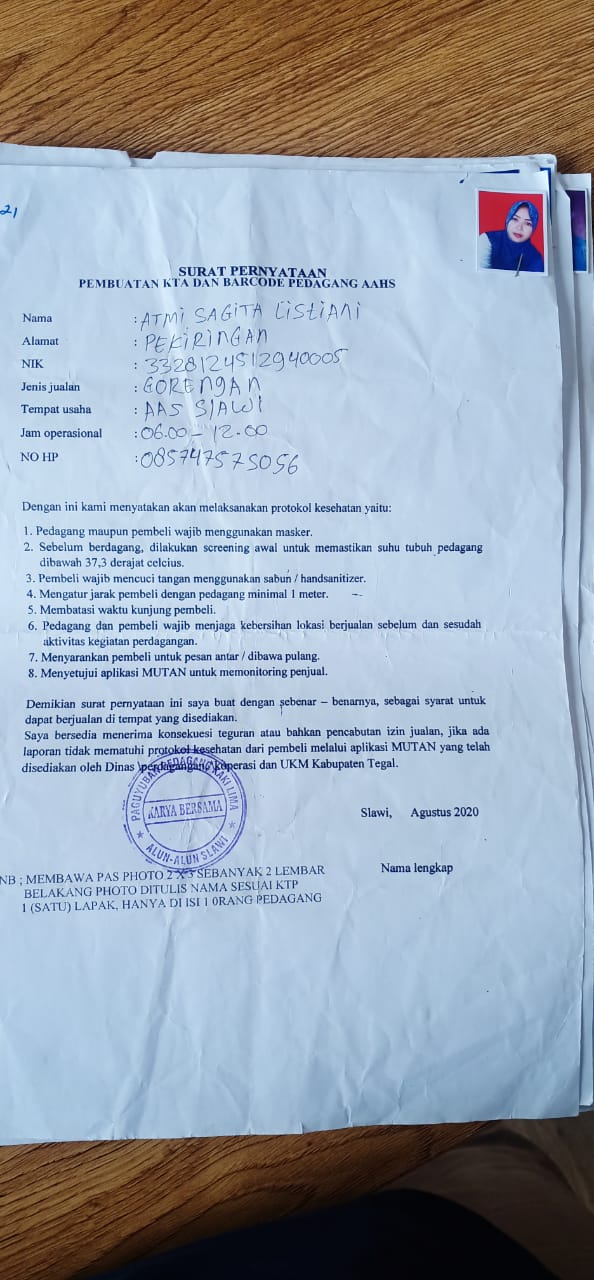 21
SURAT PERNYATAAN
PEMBUATAN KTA DAN BARCODE PEDAGANG AAHS
Nama : ATMI SAGITA LISTIANI
Alamat : PEKIRINGAN
NIK : 3328124512940005
Jenis jualan : GORENGAN
Tempat usaha : AAS SLAWI
Jam operasional : 06.00 - 12.00
NO HP : 085747575056
Dengan ini kami menyatakan akan melaksanakan protokol kesehatan yaitu:
1. Pedagang maupun pembeli wajib menggunakan masker.
2. Sebelum berdagang, dilakukan screening awal untuk memastikan suhu tubuh pedagang
dibawah 37,3 derajat celcius.
3. Pembeli wajib mencuci tangan menggunakan sabun / handsanitizer.
4. Mengatur jarak pembeli dengan pedagang minimal 1 meter.
5. Membatasi waktu kunjung pembeli.
6. Pedagang dan pembeli wajib menjaga kebersihan lokasi berjualan sebelum dan sesudah
aktivitas kegiatan perdagangan.
7. Menyarankan pembeli untuk pesan antar / dibawa pulang.
8. Menyetujui aplikasi MUTAN untuk memonitoring penjual.
Demikian surat pernyataan ini saya buat dengan sebenar – benarnya, sebagai syarat untuk
dapat berjualan di tempat yang disediakan.
Saya bersedia menerima konsekuesi teguran atau bahkan pencabutan izin jualan, jika ada
laporan tidak mematuhi protokol kesehatan dari pembeli melalui aplikasi MUTAN yang telah
disediakan oleh Dinas \perdagangang\koperasi dan UKM Kabupaten Tegal.
PAGUYUBAN PEDAGANG KAKI LIMA
KARYA BERSAMA
ALUN-ALUN SLAWI
Slawi, Agustus 2020
Nama lengkap
NB ; MEMBAWA PAS PHOTO 2 X 3 SEBANYAK 2 LEMBAR
BELAKANG PHOTO DITULIS NAMA SESUAI KTP
1 (SATU) LAPAK, HANYA DI ISI 1 0RANG PEDAGANG